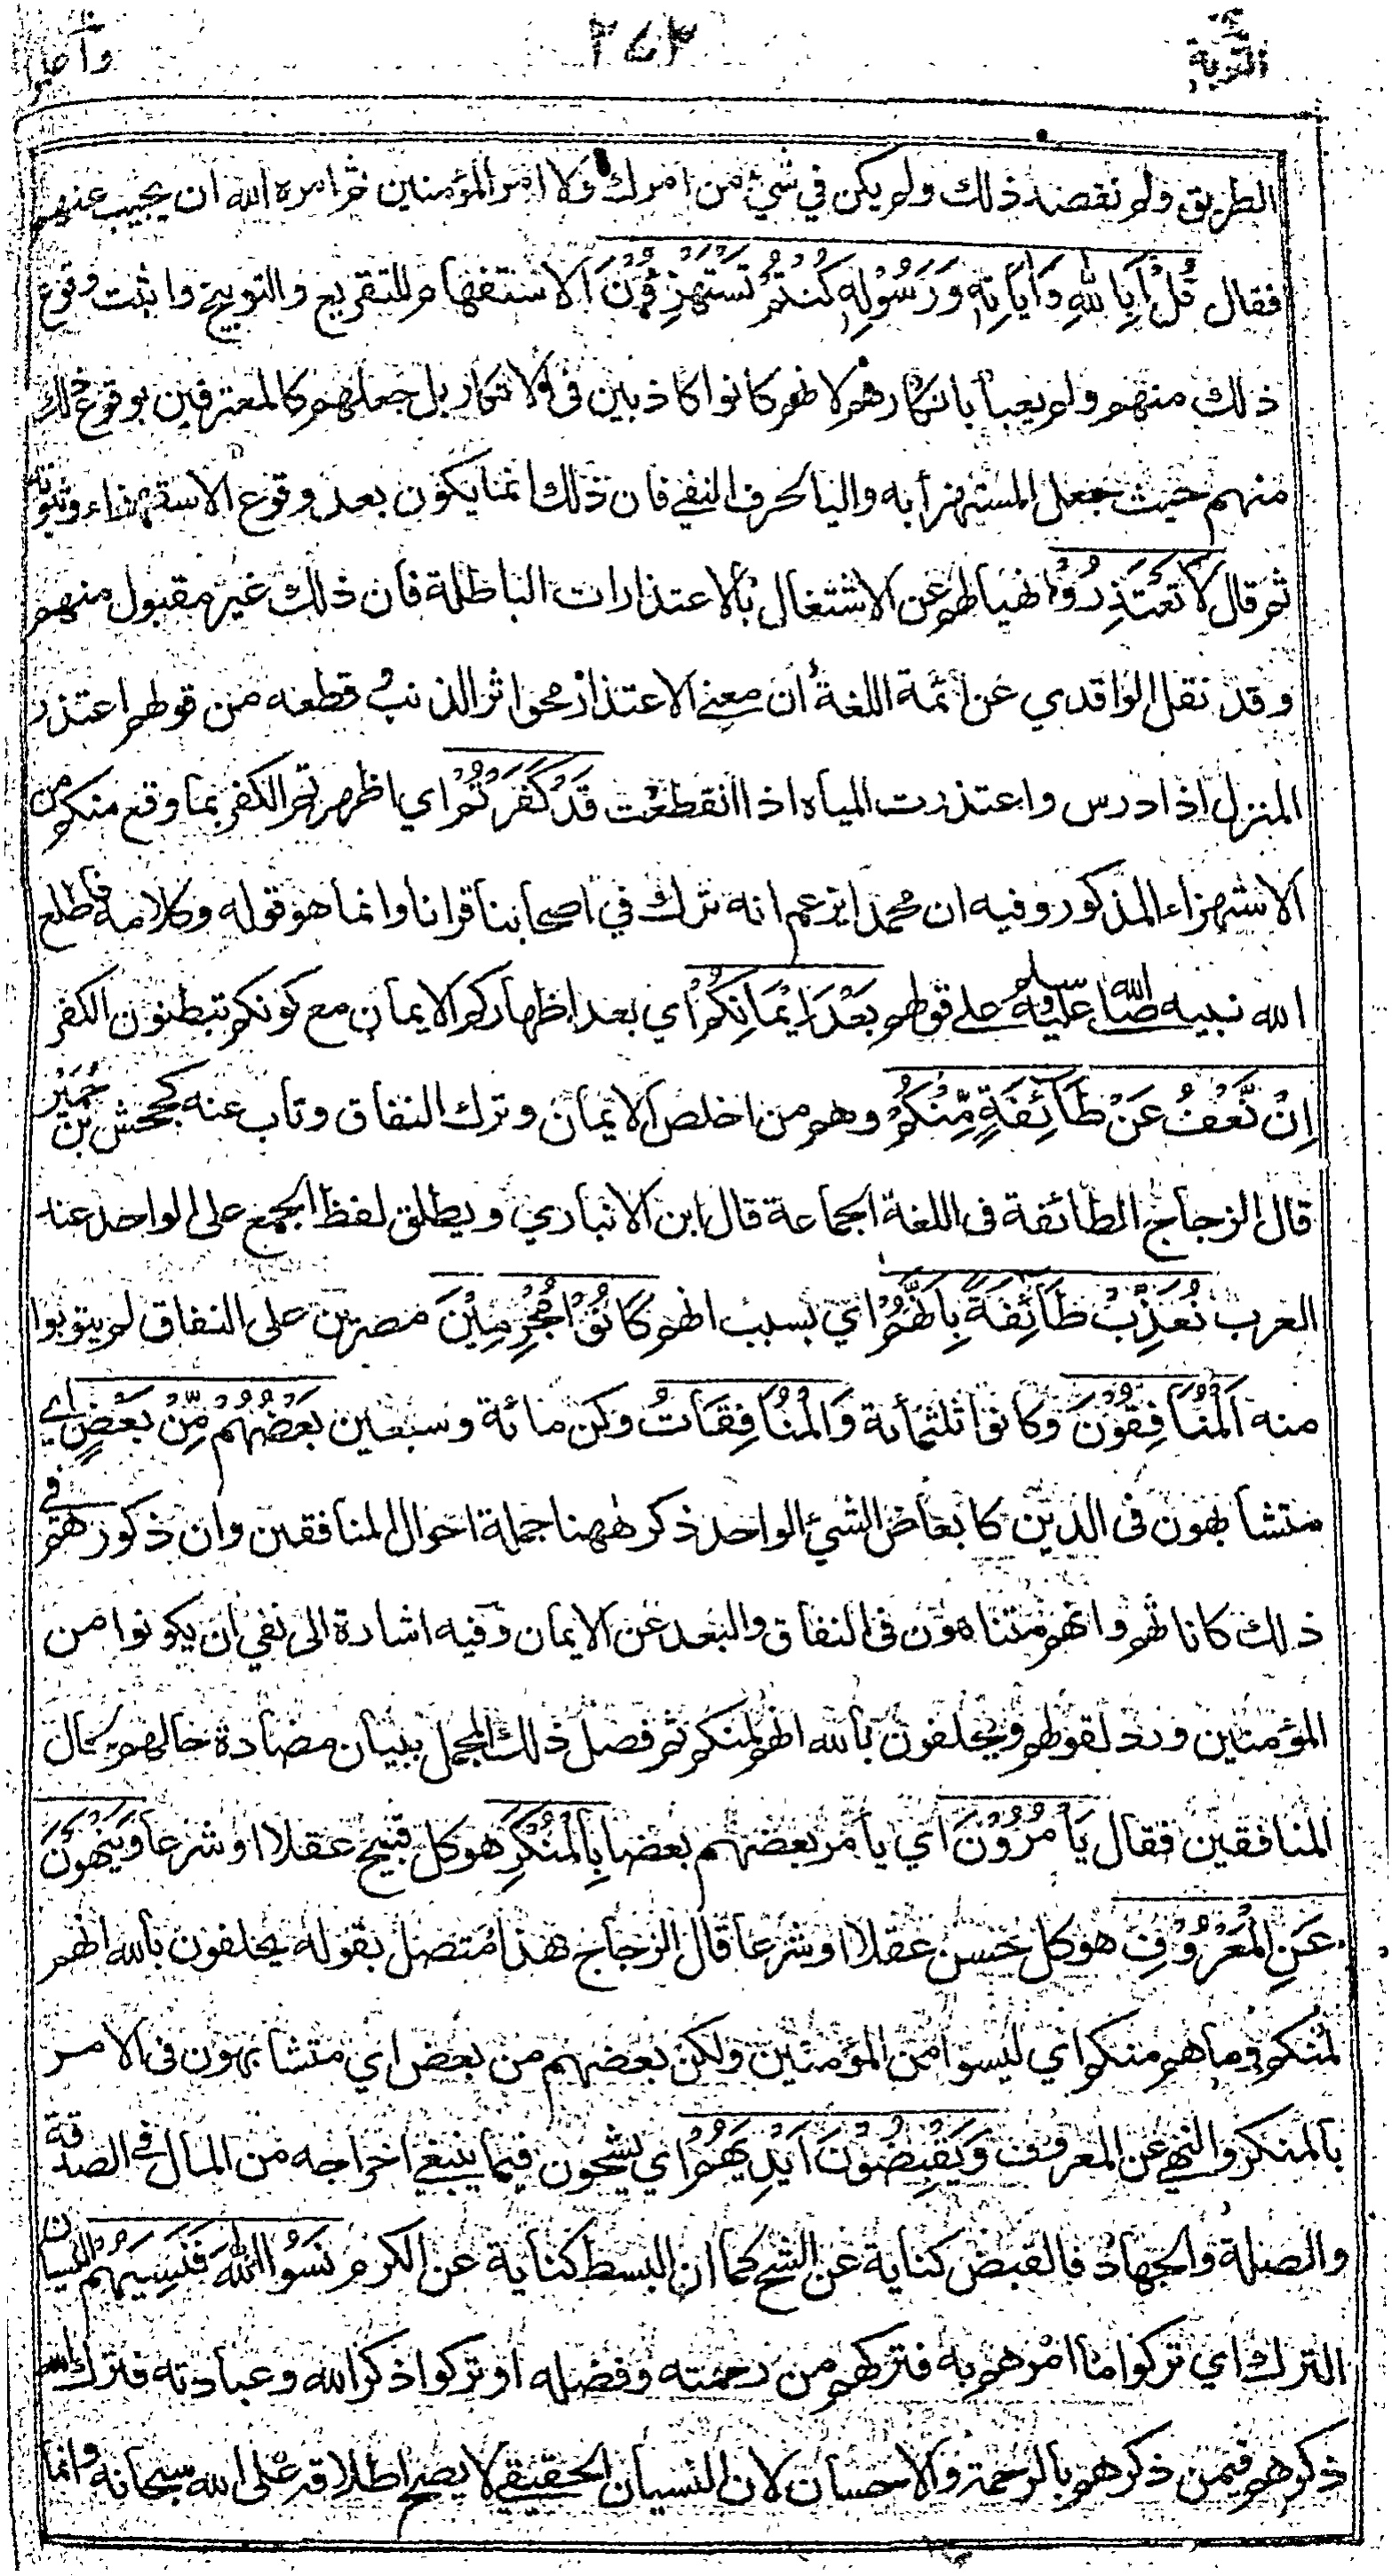 التوبة ٢٤٣ واعلموا
الطريق ولم نقصد ذلك ولم يكن في شيء من امرك ولا امر المؤمنين ثم امره الله ان يجيب عنهم
فقال قُلْ اَبِاللهِ وَاٰيَاتِهٖ وَرَسُوْلِهٖ كُنْتُمْ تَسْتَهْزِؤُنَ الاستفهام للتقريع والتوبيخ واثبت وقوع
ذلك منهم ولم يعبأ بانكارهم لانهم كانوا كاذبين فى الانكار بل جعلهم كالمعترفين بوقوع ذلك
منهم حيث جعل المستهزأ به واليا لحرف النفي فان ذلك انما يكون بعد وقوع الاستهزاء وثبوته
ثم قال لَا تَعْتَذِرُوْا نهيا لهم عن الاشتغال بالاعتذارات الباطلة فان ذلك غير مقبول منهم
وقد نقل الواقدي عن ائمة اللغة ان معنى الاعتذار محو اثر الذنب وقطعه من قولهم اعتذر
المنزل اذا درس واعتذرت المياه اذا انقطعت قَدْ كَفَرْتُمْ اي اظهرتم الكفر بما وقع منكم من
الاستهزاء المذكور وفيه ان محمدا يزعم انه نزل في اصحابنا قرانا وانما هو قوله وكلامه فاطلع
الله نبيه صلى الله عليه وسلم على قولهم بَعْدَ اِيْمَانِكُمْ اي بعد اظهاركم الايمان مع كونكم تبطنون الكفر
اِنْ نَّعْفُ عَنْ طَآئِفَةٍ مِّنْكُمْ وهم من اخلص الايمان وترك النفاق وتاب عنه كجحش بن حُمَيْر
قال الزجاج الطائفة فى اللغة الجماعة قال ابن الانباري ويطلق لفظ الجمع على الواحد عند
العرب نُعَذِّبْ طَآئِفَةً بِاَنَّهُمْ اي بسبب انهم كَانُوْا مُجْرِمِيْنَ مصرين على النفاق لم يتوبوا
منه اَلْمُنَافِقُوْنَ وكانوا ثلثمائة وَالْمُنَافِقَاتُ وكن مائة وسبعين بَعْضُهُمْ مِّنْ بَعْضٍ اي
متشابهون فى الدين كابعاض الشيء الواحد ذكر ههنا جملة احوال المنافقين وان ذكورهم في
ذلك كاناثهم وانهم متناهون فى النفاق والبعد عن الايمان وفيه اشارة الى نفي ان يكونوا من
المؤمنين ورد لقولهم ويحلفون بالله انهم لمنكم ثم فصل ذلك المجمل ببيان مضادة حالهم كحال
المنافقين فقال يَاْمُرُوْنَ اي يأمر بعضهم بعضا بِالْمُنْكَرِ هو كل قبيح عقلا او شرعا وَيَنْهَوْنَ
عَنِ الْمَعْرُوْفِ هو كل حسن عقلا او شرعا قال الزجاج هذا متصل بقوله يحلفون بالله انهم
لمنكم وما هم منكم اي ليسوا من المؤمنين ولكن بعضهم من بعض اي متشابهون فى الامر
بالمنكر والنهي عن المعروف وَيَقْبِضُوْنَ اَيْدِيَهُمْ اي يشحون فيما ينبغي اخراجه من المال في الصدقة
والصلة والجهاد فالقبض كناية عن الشح كما ان البسط كناية عن الكرم نَسُوا اللهَ فَنَسِيَهُمْ النسيان
الترك اي تركوا ما امرهم به فتركهم من رحمته وفضله او تركوا ذكر الله وعبادته فترك الله
ذكرهم فيمن ذكرهم بالرحمة والاحسان لان النسيان الحقيقي لا يصح اطلاقه على الله سبحانه وانما